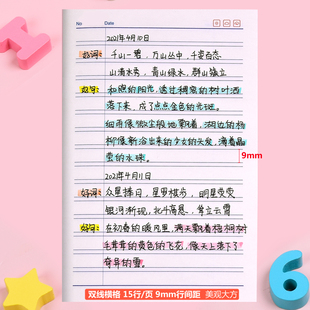 No
Date
2021年4月10日
好词: 千山一碧、万山丛中、千姿百态
山清水秀、青山绿水、群山独立
好句: 和煦的阳光, 透过稠密的树叶洒
落下来, 成了点点金色的光斑。
细雨像微尘般地飘着, 湖边的杨
柳像新浴出来的少女的头发, 滴着晶
莹的水珠。
9mm
2021年4月11日
好词: 众星捧月、星罗棋布、明星荧荧
银河渐现、北斗高悬、耸立云霄
好句: 在初春的暖风里, 满天飘着梧桐树
毛茸茸的黄色的飞花, 像天上落下了
奇异的雪。
双线横格 15行/页 9mm行间距 美观大方
6